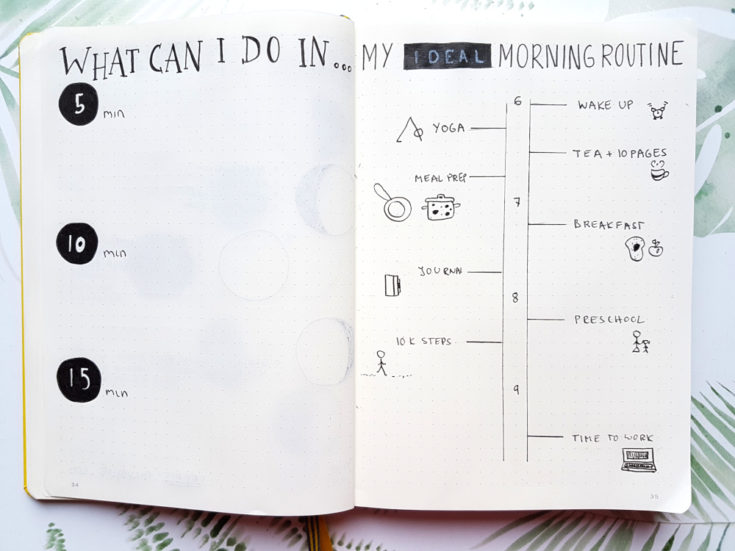 WHAT CAN I DO IN...
5 min
10 min
15 min
34
MY IDEAL MORNING ROUTINE
6
WAKE UP
YOGA
TEA + 10 PAGES
MEAL PREP
7
BREAKFAST
JOURNAL
8
PRESCHOOL
10K STEPS
9
TIME TO WORK
35